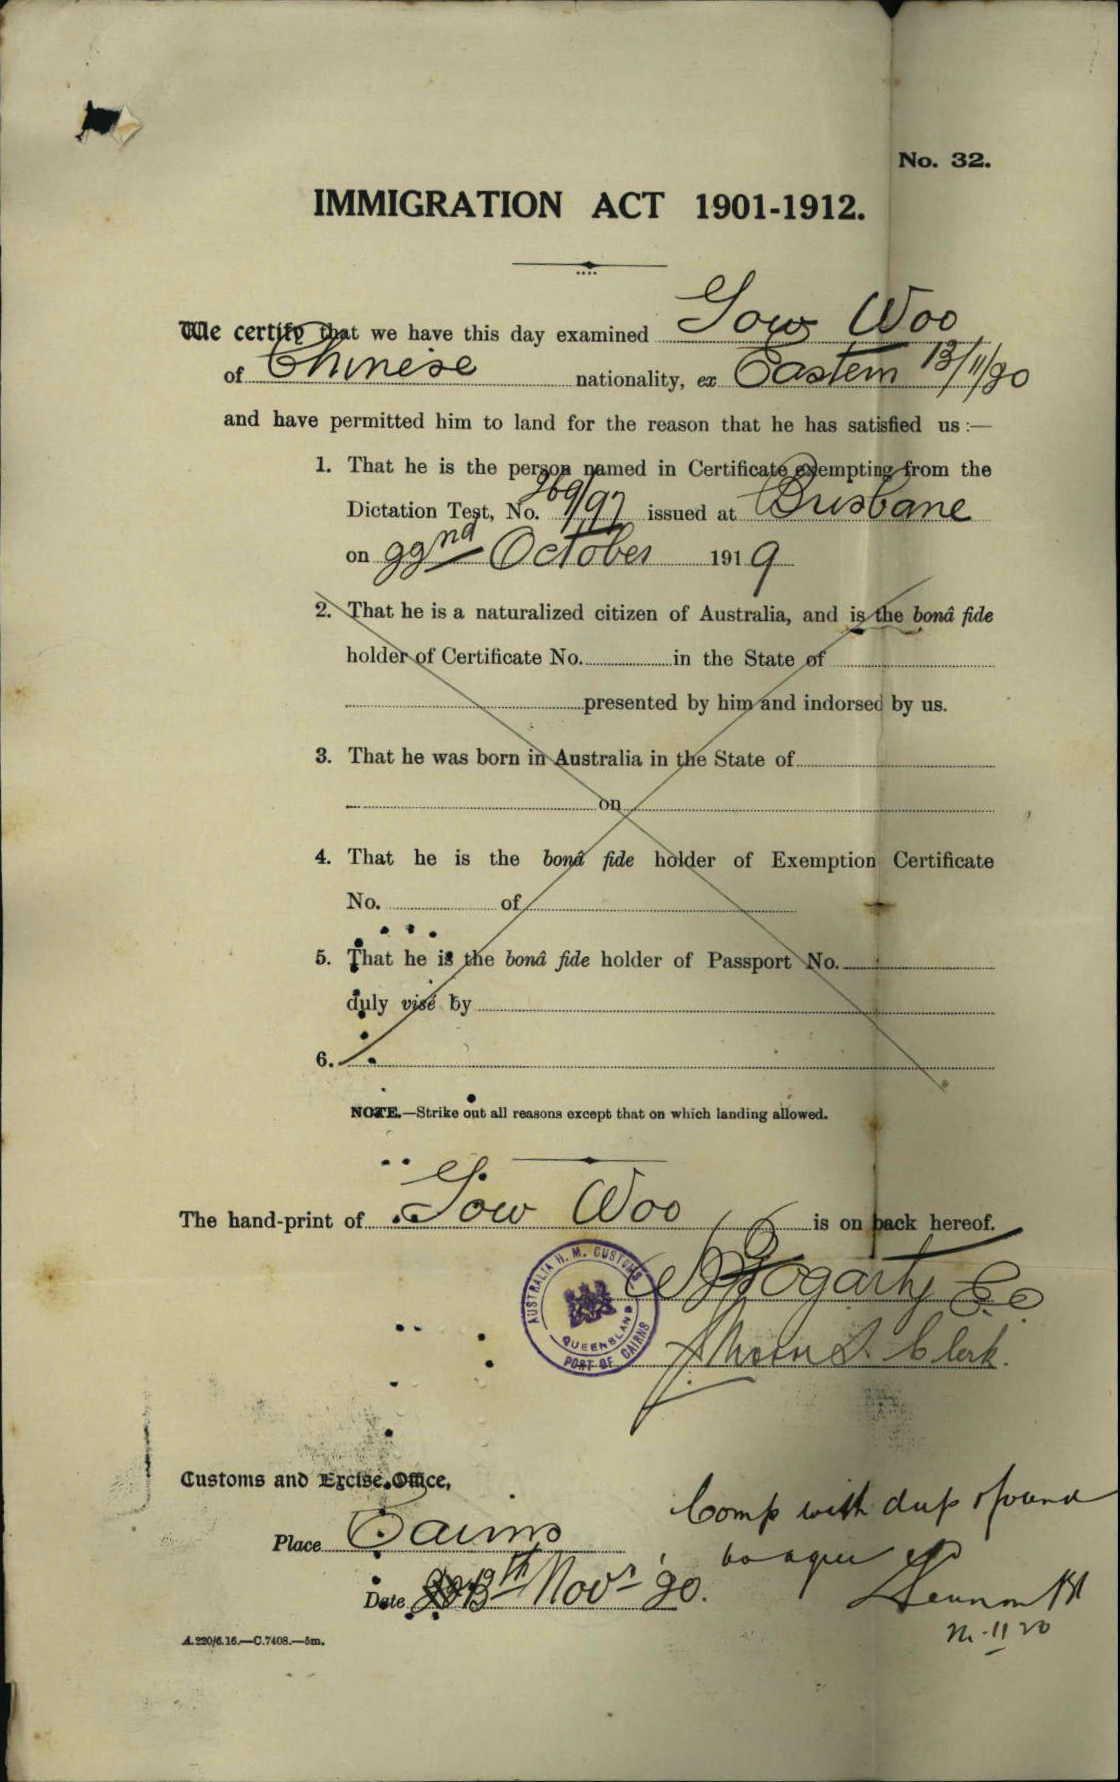 No. 32.
IMMIGRATION ACT 1901-1912.
We certify that we have this day examined Gow Woo
of Chinese nationality, ex Eastern 13/11/20
and have permitted him to land for the reason that he has satisfied us :—
1. That he is the person named in Certificate exempting from the
Dictation Test, No. 269/97 issued at Brisbane
on 22nd October 1919
2. That he is a naturalized citizen of Australia, and is the bonâ fide
holder of Certificate No. in the State of
presented by him and indorsed by us.
3. That he was born in Australia in the State of
on
4. That he is the bonâ fide holder of Exemption Certificate
No. of
5. That he is the bonâ fide holder of Passport No.
duly visé by
6.
NOTE.—Strike out all reasons except that on which landing allowed.
The hand-print of Gow Woo is on back hereof.
AUSTRALIA H. M. CUSTOMS
QUEENSLAND
PORT OF CAIRNS
Fogarty E.O.
Clerk.
Customs and Excise Office,
Place Cairns
Date 13th Novr 20.
Comp with dup & found
to agree
A.220/6.16.—C.7408.—5m.